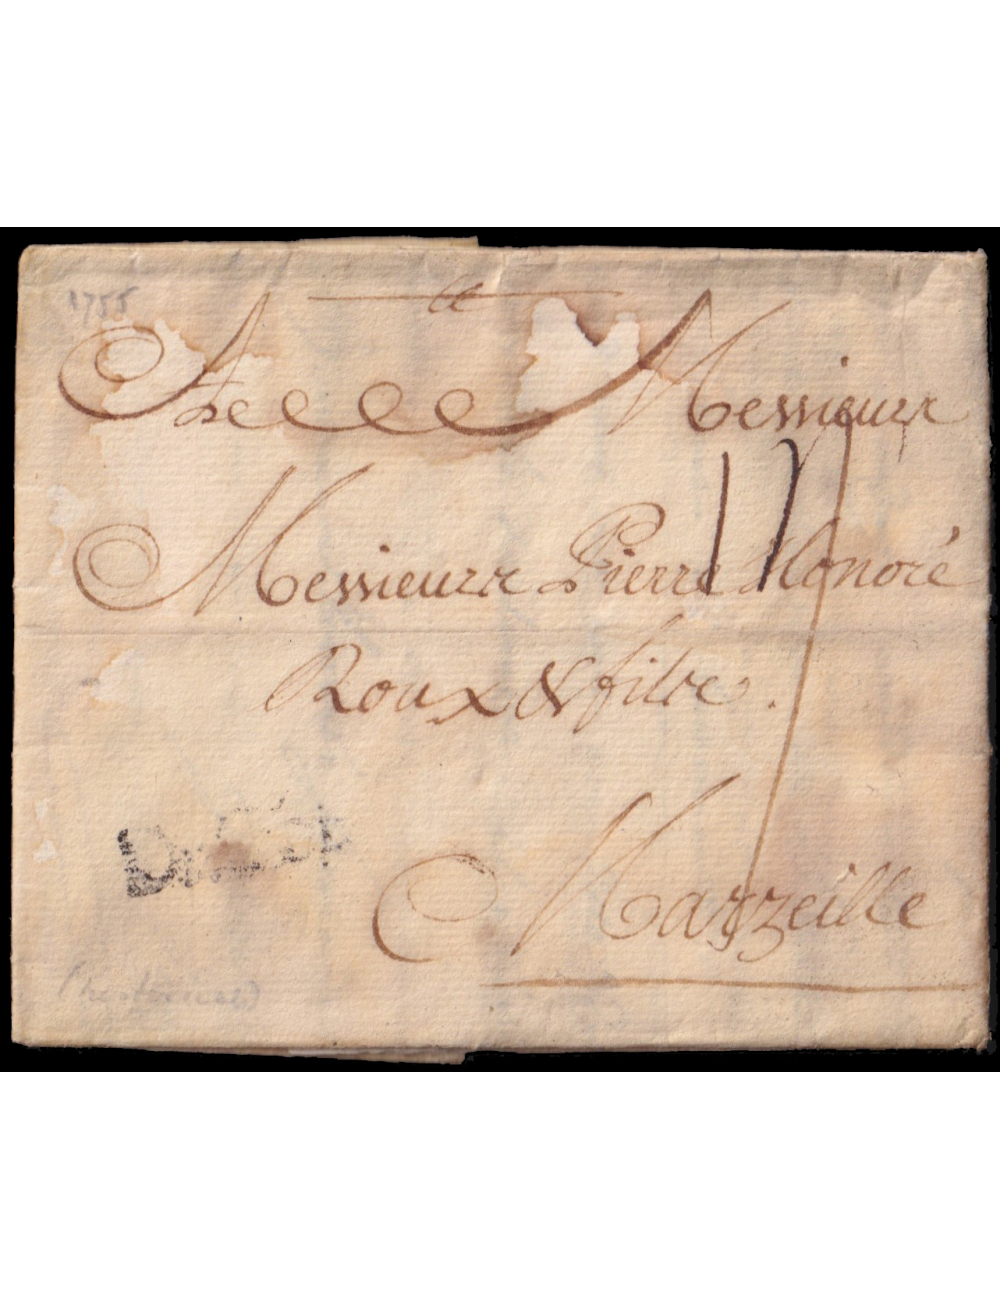 1755
A Messieurs
Messieurs Pierre Honoré
Roux & filse.
Marzeille